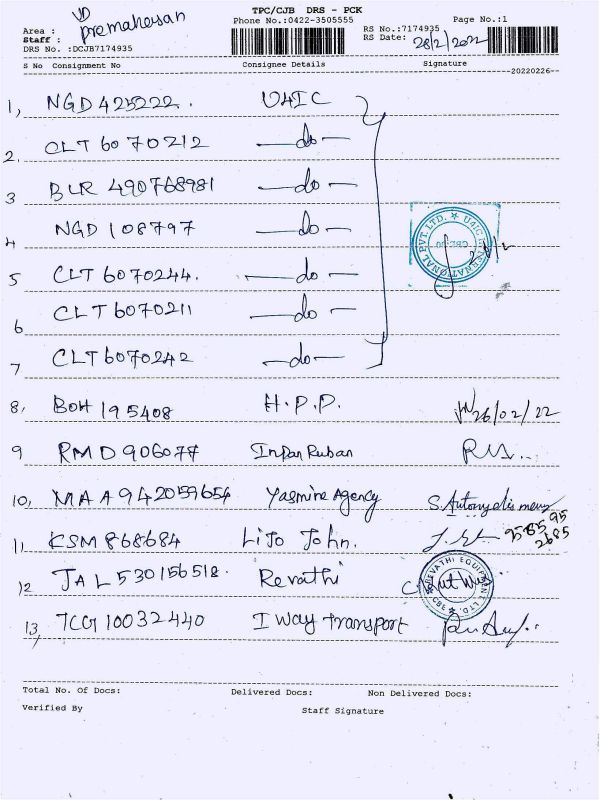 TPC/CJB DRS - PCK
Phone No.:0422-3505555
Page No.:1
Area :
VD
premahesan
Staff :
DRS No. :DCJB7174935
RS No.:7174935
RS Date: 28/2/2022
S No Consignment No Consignee Details Signature
20220226
1, NGD 425222. U4IC
2. CLT 6070212 —do—
3 BLR 490768981 —do—
4 NGD 108797 —do—
5 CLT 6070244. —do—
6 CLT 6070211 —do—
7 CLT 6070242 —do—
U4IC INTERNATIONAL PVT. LTD. ★
8, BOH 195408 H.P.P. 26/02/22
9 RMD 906077 Inpan Ruban
10, MAA 942059654 Yasmine Agency S. Antony
11, KSM 868684 Lijo John. 958595
2685
12 JAL 530156518. Revathi
REVATHI EQUIPMENT LTD. ★ CBE
13, TCG 10032440 I way transport
Total No. Of Docs: Delivered Docs: Non Delivered Docs:
Verified By Staff Signature